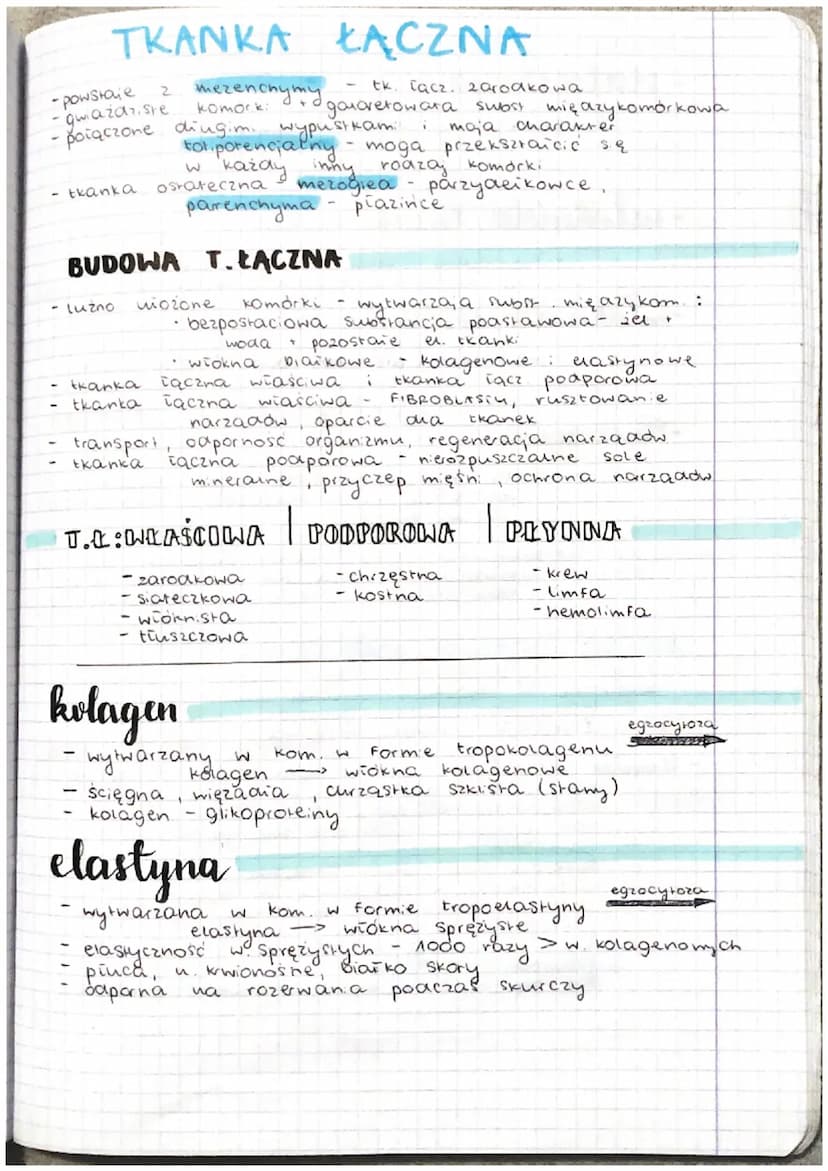 TKANKA ŁĄCZNA
- powstaje z mezenchymy - tk. łącz. zarodkowa
- gwiaździste komórki + galaretowata subst międzykomórkowa
- połączone długimi wypustkami i mają charakter
totipotencjalny - mogą przekształcić się
w każdy inny rodzaj komórki
- tkanka ostateczna - mezoglea - parzydełkowce,
parenchyma - płazińce
BUDOWA T. ŁĄCZNA
- luźno ułożone komórki - wytwarzają subst. międzykom. :
· bezpostaciowa substancja podstawowa - żel +
woda + pozostałe el. tkanki
· włókna białkowe - kolagenowe i elastynowe
- tkanka łączna właściwa i tkanka łącz podporowa
- tkanka łączna właściwa - FIBROBLASTY, rusztowanie
narządów, oparcie dla tkanek
- transport, odporność organizmu, regeneracja narządów
- tkanka łączna podporowa - nierozpuszczalne sole
mineralne, przyczep mięśni, ochrona narządów
T.Ł: WŁAŚCIWA | PODPOROWA | PŁYNNA
- zarodkowa - chrzęstna - krew
- siateczkowa - kostna - limfa
- włóknista - hemolimfa
- tłuszczowa
kolagen
egzocytoza
- wytwarzany w kom. w formie tropokolagenu
kolagen → włókna kolagenowe
- ścięgna, więzadła, chrząstka szklista (stawy)
- kolagen - glikoproteiny
elastyna
egzocytoza
- wytwarzana w kom. w formie tropoelastyny
elastyna → włókna sprężyste
- elastyczność w. sprężystych - 1000 razy > w. kolagenowych
- płuca, n. krwionośne, białko skóry
- odporna na rozerwania podczas skurczy